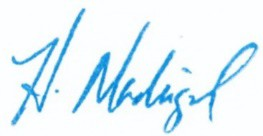 H. Madrigal